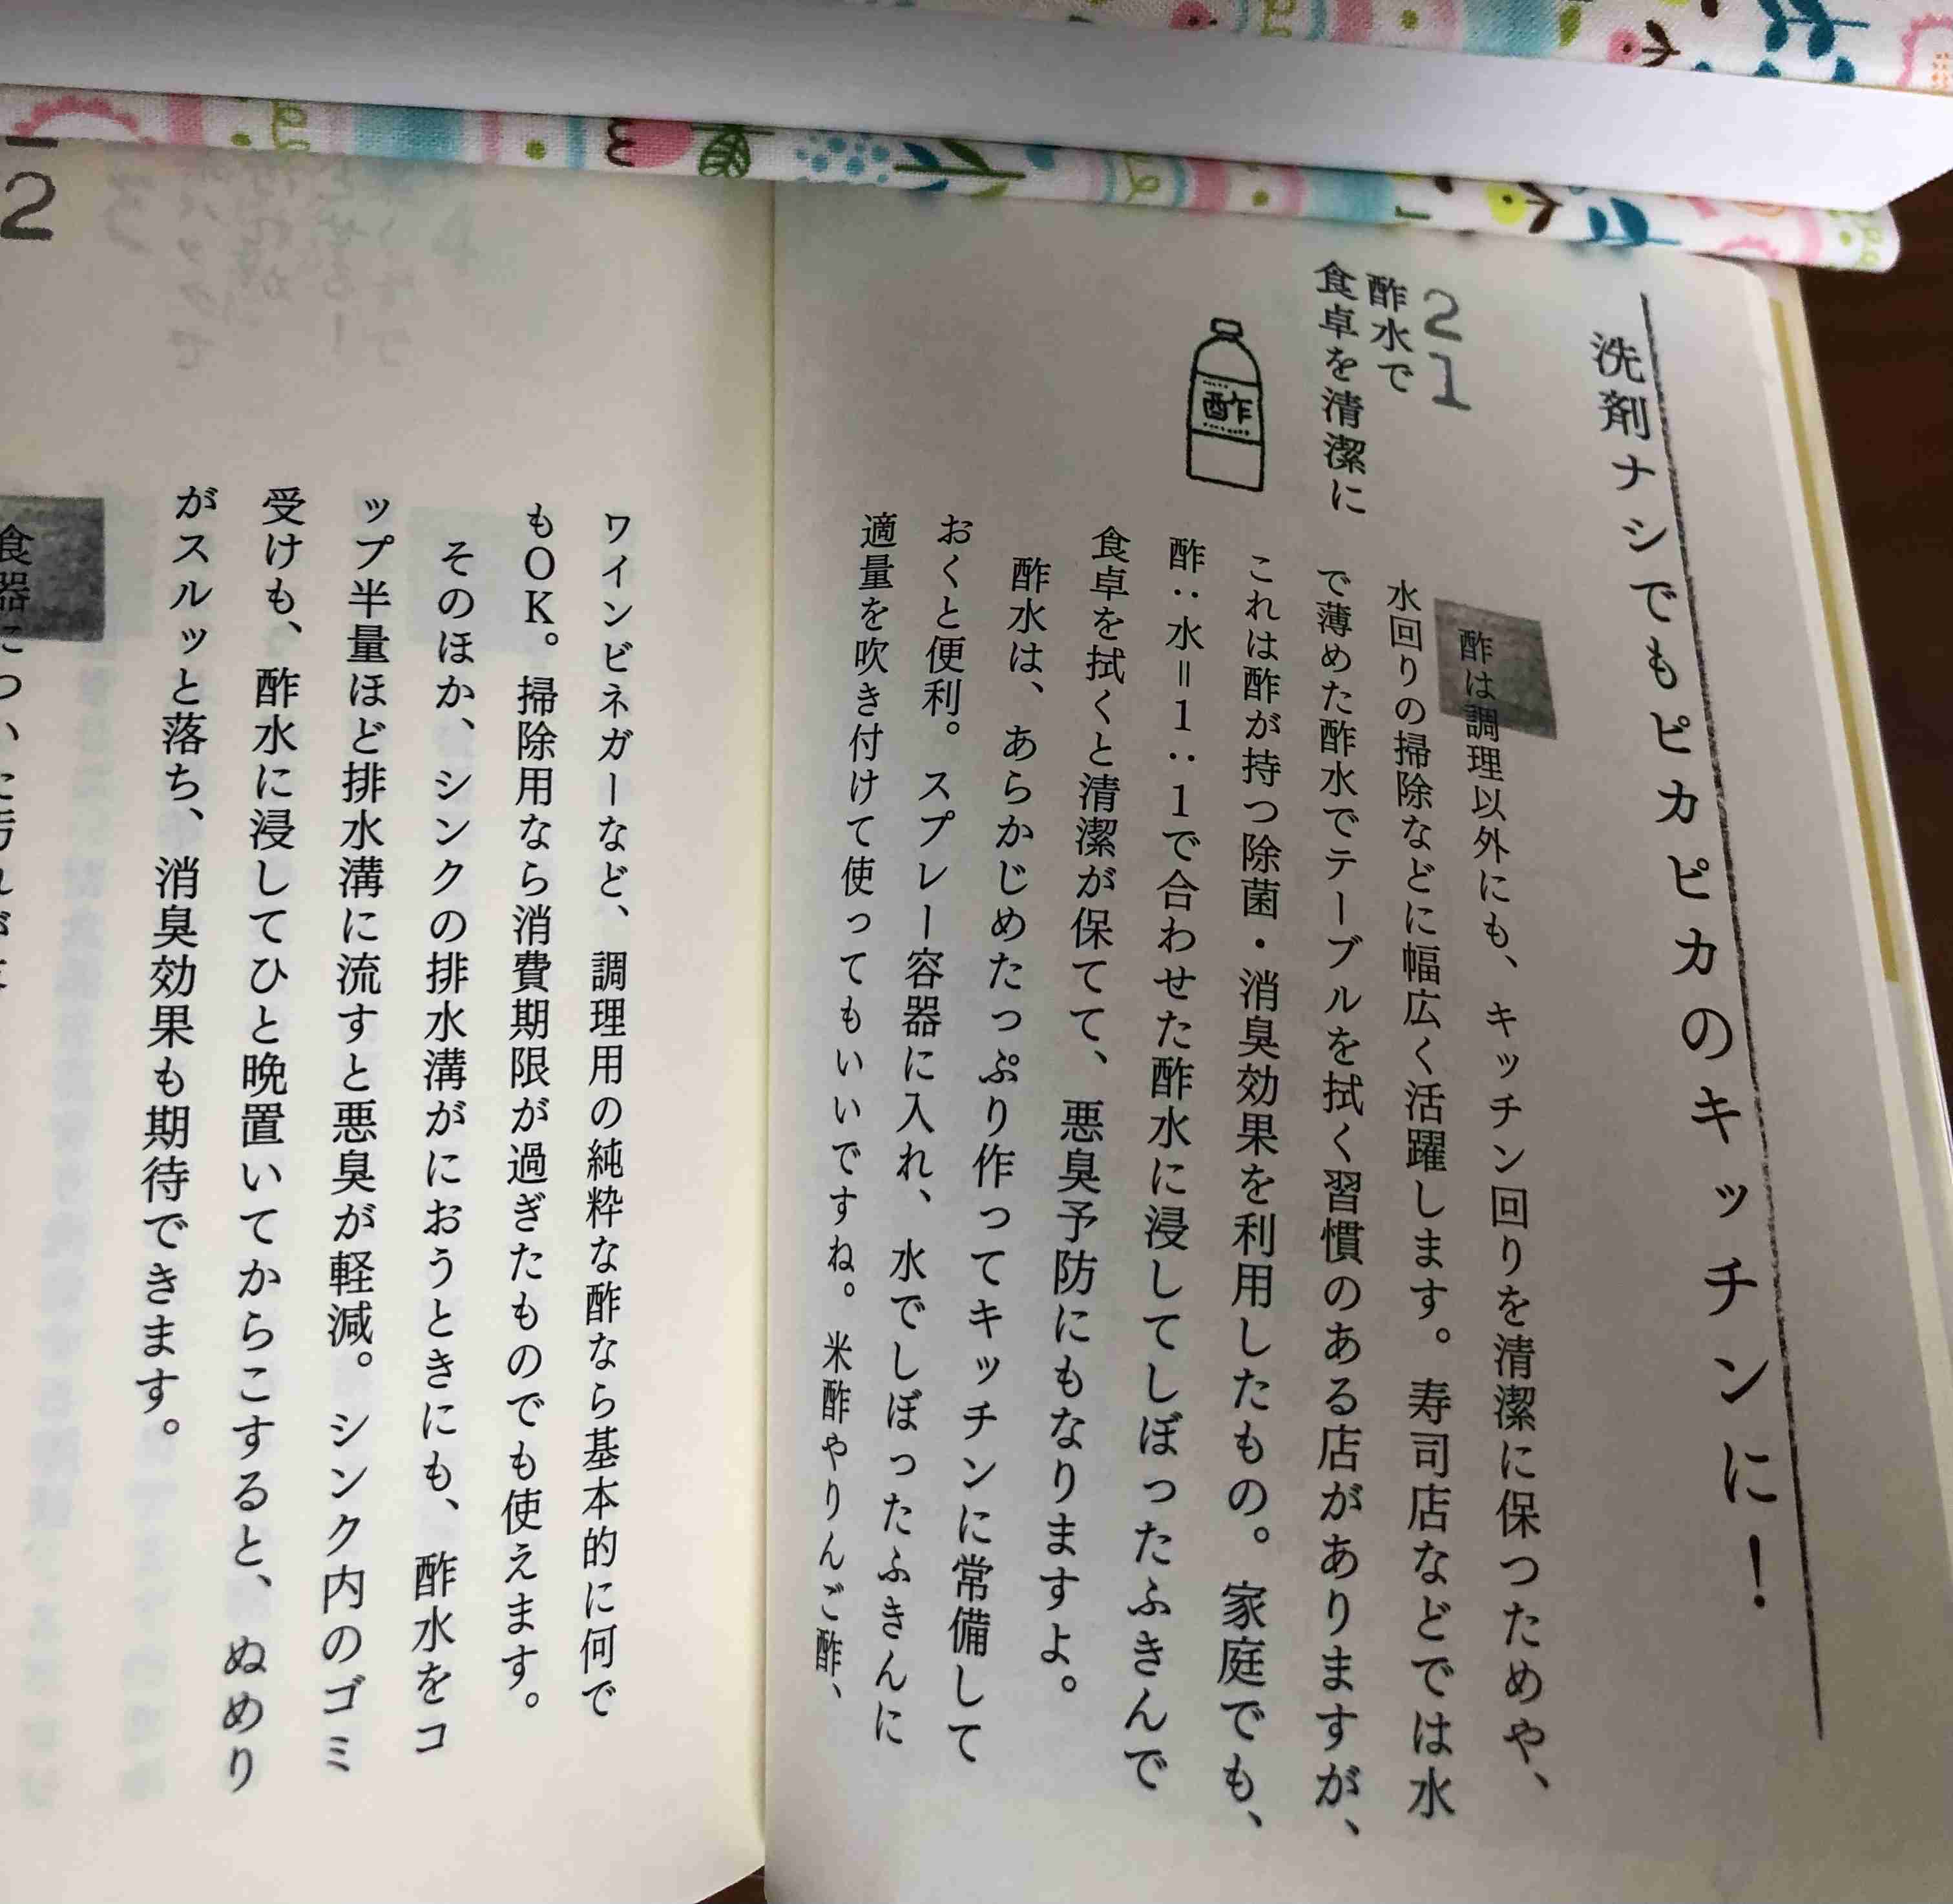 洗剤ナシでもピカピカのキッチンに！
21
酢水で
食卓を清潔に
酢
酢は調理以外にも、キッチン回りを清潔に保つためや、
水回りの掃除などに幅広く活躍します。寿司店などでは水
で薄めた酢水でテーブルを拭く習慣のある店がありますが、
これは酢が持つ除菌・消臭効果を利用したもの。家庭でも、
酢：水＝1：1で合わせた酢水に浸してしぼったふきんで
食卓を拭くと清潔が保てて、悪臭予防にもなりますよ。
酢水は、あらかじめたっぷり作ってキッチンに常備して
おくと便利。スプレー容器に入れ、水でしぼったふきんに
適量を吹き付けて使ってもいいですね。米酢やりんご酢、
ワインビネガーなど、調理用の純粋な酢なら基本的に何で
もOK。掃除用なら消費期限が過ぎたものでも使えます。
そのほか、シンクの排水溝がにおうときにも、酢水をコ
ップ半量ほど排水溝に流すと悪臭が軽減。シンク内のゴミ
受けも、酢水に浸してひと晩置いてからこすると、ぬめり
がスルッと落ち、消臭効果も期待できます。
2
食器についた汚れが